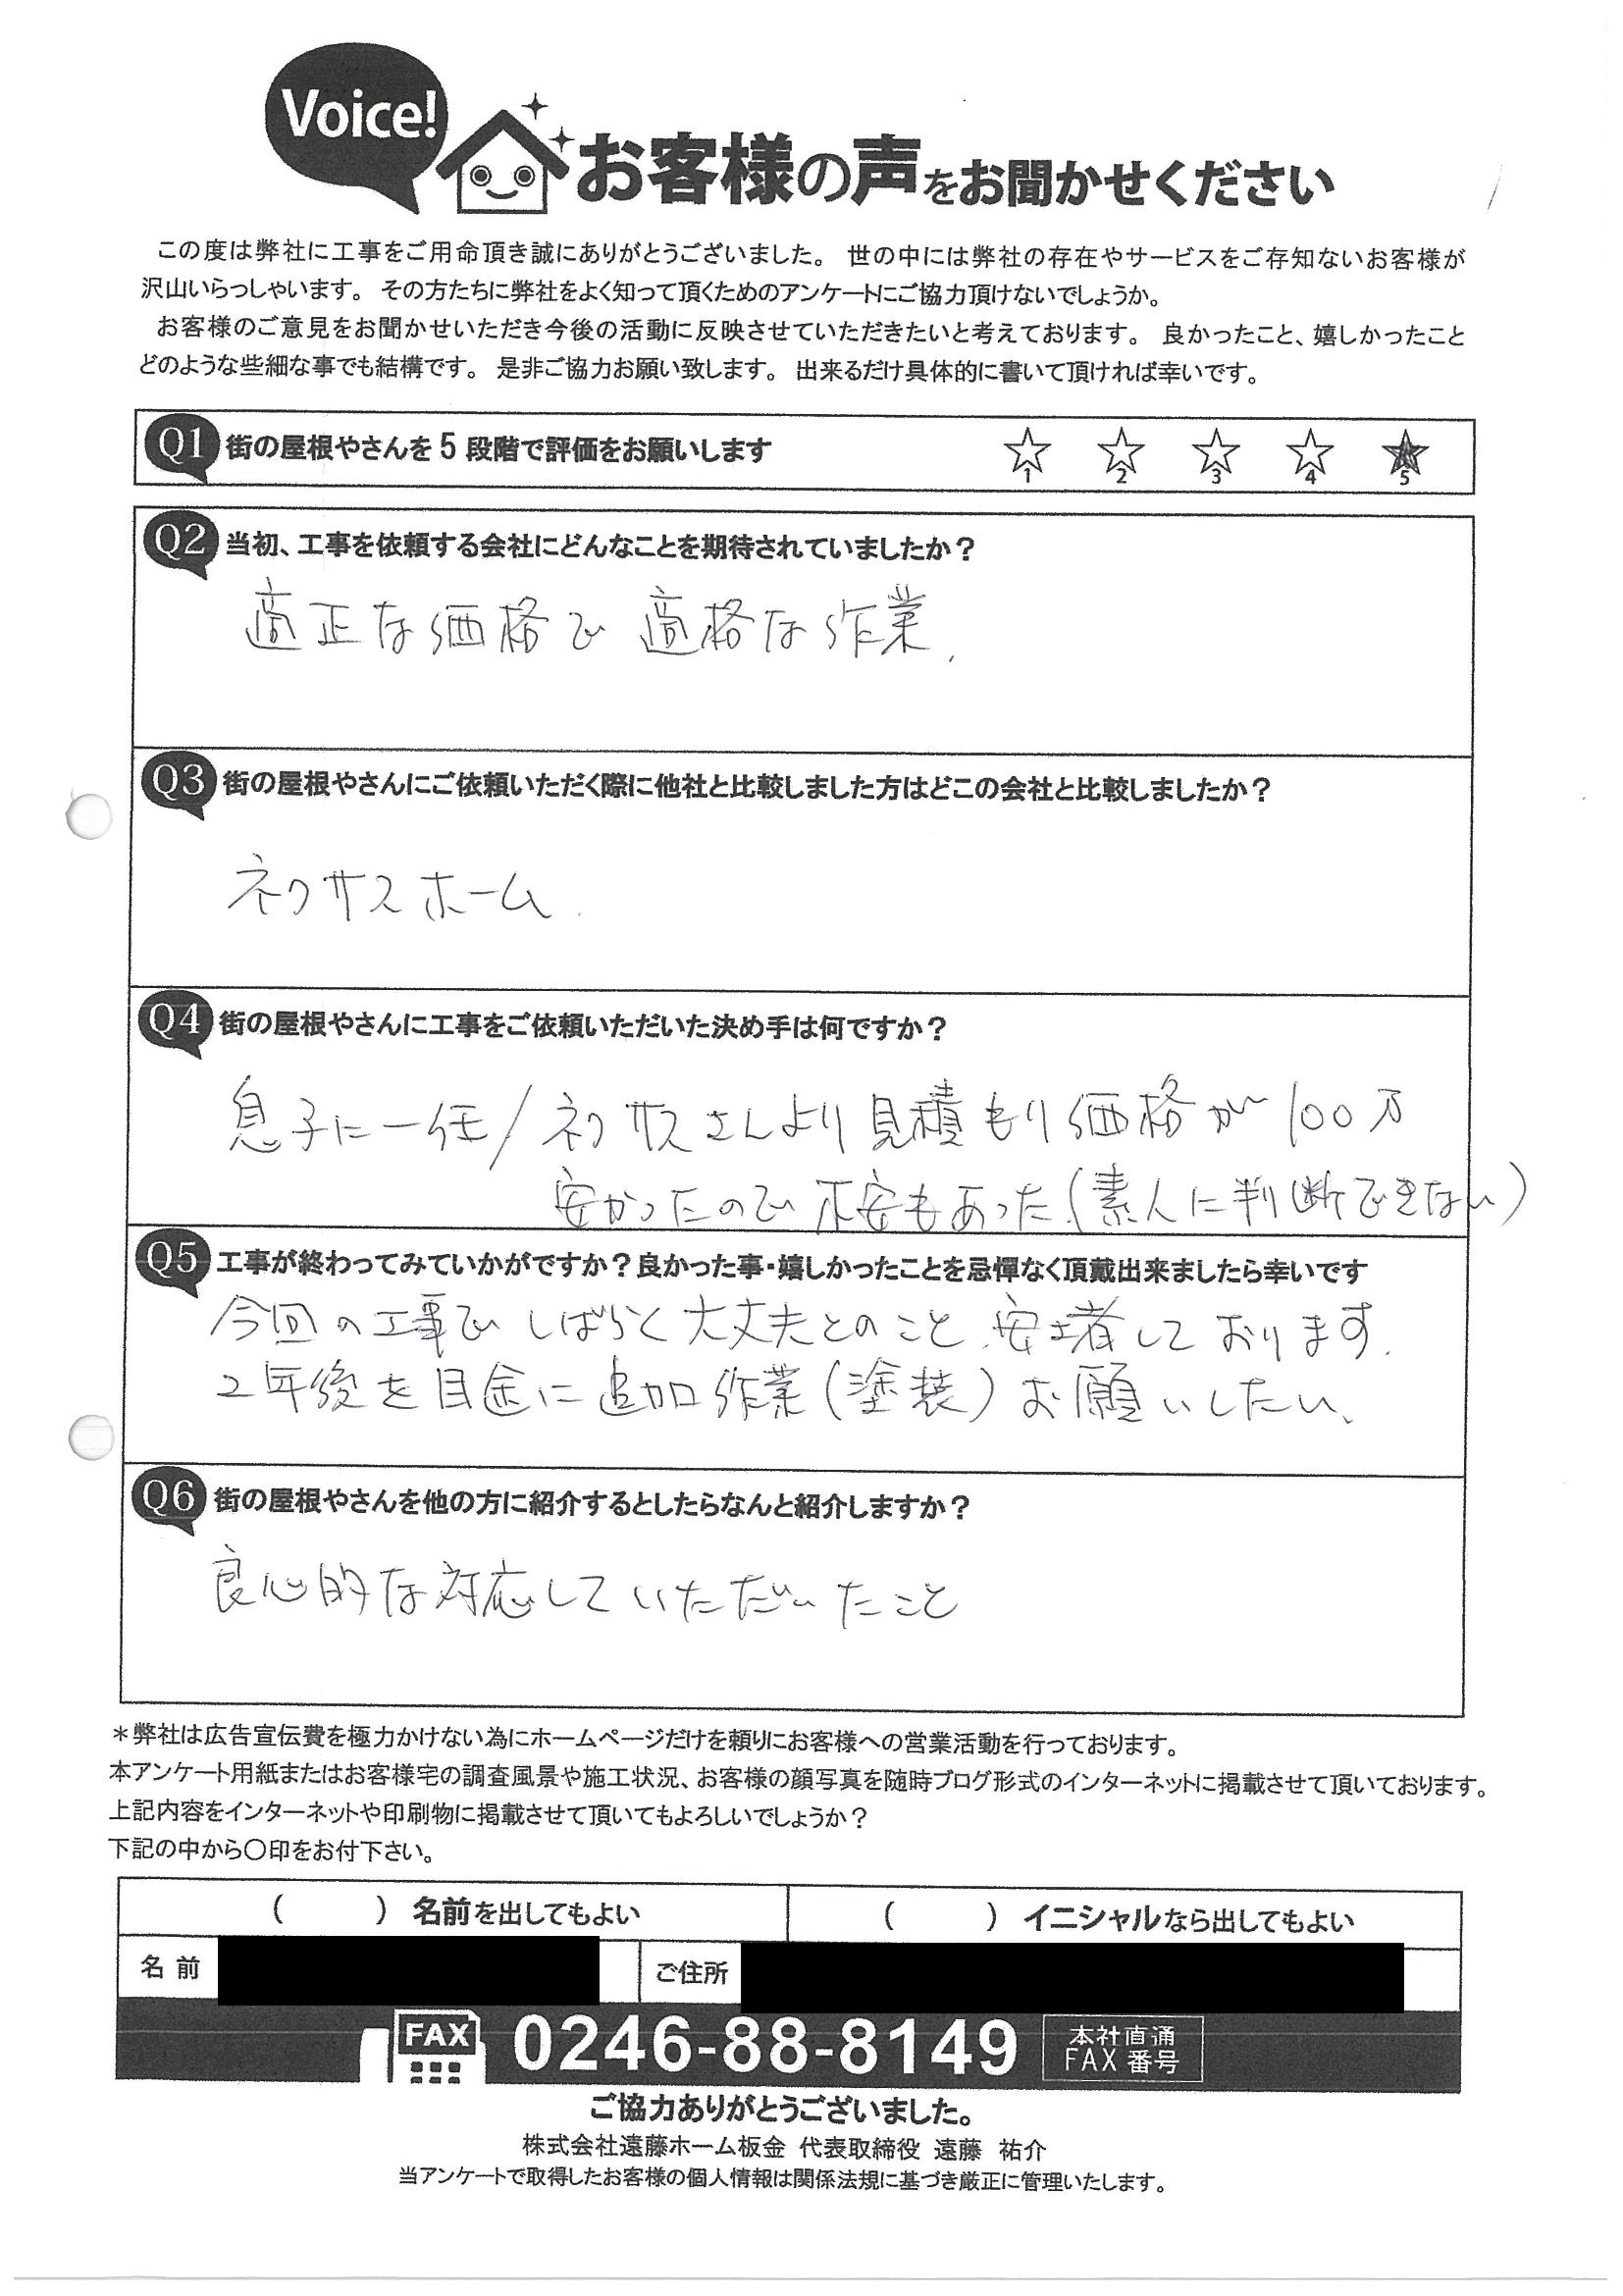 Voice!
お客様の声をお聞かせください
この度は弊社に工事をご用命頂き誠にありがとうございました。 世の中には弊社の存在やサービスをご存知ないお客様が
沢山いらっしゃいます。 その方たちに弊社をよく知って頂くためのアンケートにご協力頂けないでしょうか。
お客様のご意見をお聞かせいただき今後の活動に反映させていただきたいと考えております。 良かったこと、嬉しかったこと
どのような些細な事でも結構です。 是非ご協力お願い致します。 出来るだけ具体的に書いて頂ければ幸いです。
Q1 街の屋根やさんを5段階で評価をお願いします ☆1 ☆2 ☆3 ☆4 ★5
Q2 当初、工事を依頼する会社にどんなことを期待されていましたか？
適正な価格で 適格な作業.
Q3 街の屋根やさんにご依頼いただく際に他社と比較しました方はどこの会社と比較しましたか？
ネクサスホーム.
Q4 街の屋根やさんに工事をご依頼いただいた決め手は何ですか？
息子に一任/ネクサスさんより見積もり価格が100万
安かったので不安もあった.(素人に判断できない)
Q5 工事が終わってみていかがですか？良かった事・嬉しかったことを忌憚なく頂戴出来ましたら幸いです
今回の工事でしばらく大丈夫とのこと、安堵しております.
2年後を目途に追加作業(塗装)お願いしたい、
Q6 街の屋根やさんを他の方に紹介するとしたらなんと紹介しますか？
良心的な対応していただいたこと
＊弊社は広告宣伝費を極力かけない為にホームページだけを頼りにお客様への営業活動を行っております。
本アンケート用紙またはお客様宅の調査風景や施工状況、お客様の顔写真を随時ブログ形式のインターネットに掲載させて頂いております。
上記内容をインターネットや印刷物に掲載させて頂いてもよろしいでしょうか？
下記の中から〇印をお付下さい。
（　　）名前を出してもよい （　　）イニシャルなら出してもよい
名前 ご住所
FAX 0246-88-8149 本社直通
FAX番号
ご協力ありがとうございました。
株式会社遠藤ホーム板金 代表取締役 遠藤 祐介
当アンケートで取得したお客様の個人情報は関係法規に基づき厳正に管理いたします。